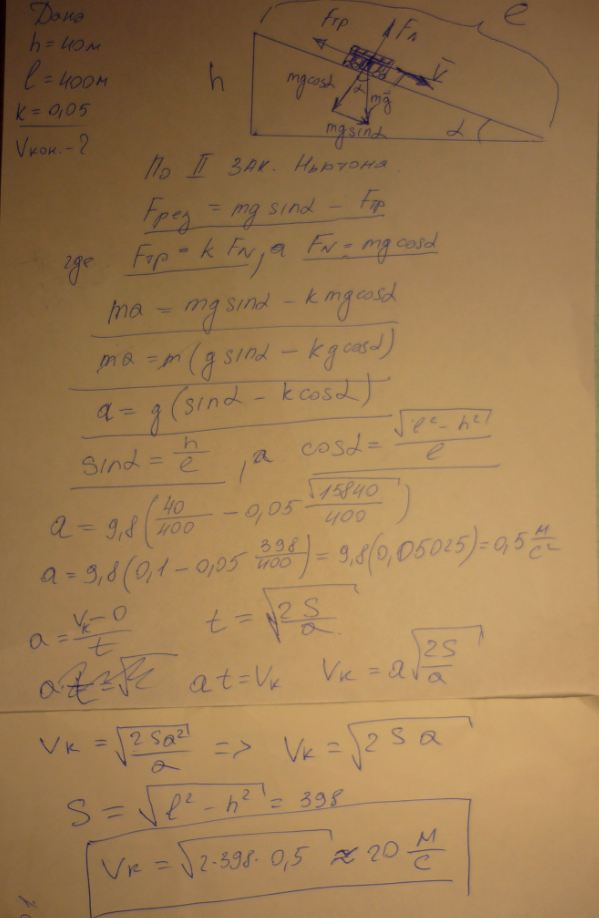 Дано
h = 40м
l = 400м
k = 0,05
Vкон. - ?
l
h
Fтр
V
mgcosα
α
mg
mgsinα
α
По II зак. Ньютона
Fрез = mg sinα - Fтр
где Fтр = k FN, а FN = mg cosα
ma = mg sinα - kmg cosα
ma = m(g sinα - kg cosα)
a = g(sinα - k cosα)
sinα = h/l, а cosα = √(l² - h²)/l
a = 9,8(40/400 - 0,05 √15840/400)
a = 9,8(0,1 - 0,05 398/400) = 9,8(0,05025) = 0,5 м/с²
a = (Vк - 0)/t t = √(2S/a)
at = Vк Vк = a√(2S/a)
Vк = √(2Sa²/a) => Vк = √(2Sa)
S = √(l² - h²) = 398
Vк = √(2·398·0,5) ≈ 20 м/с